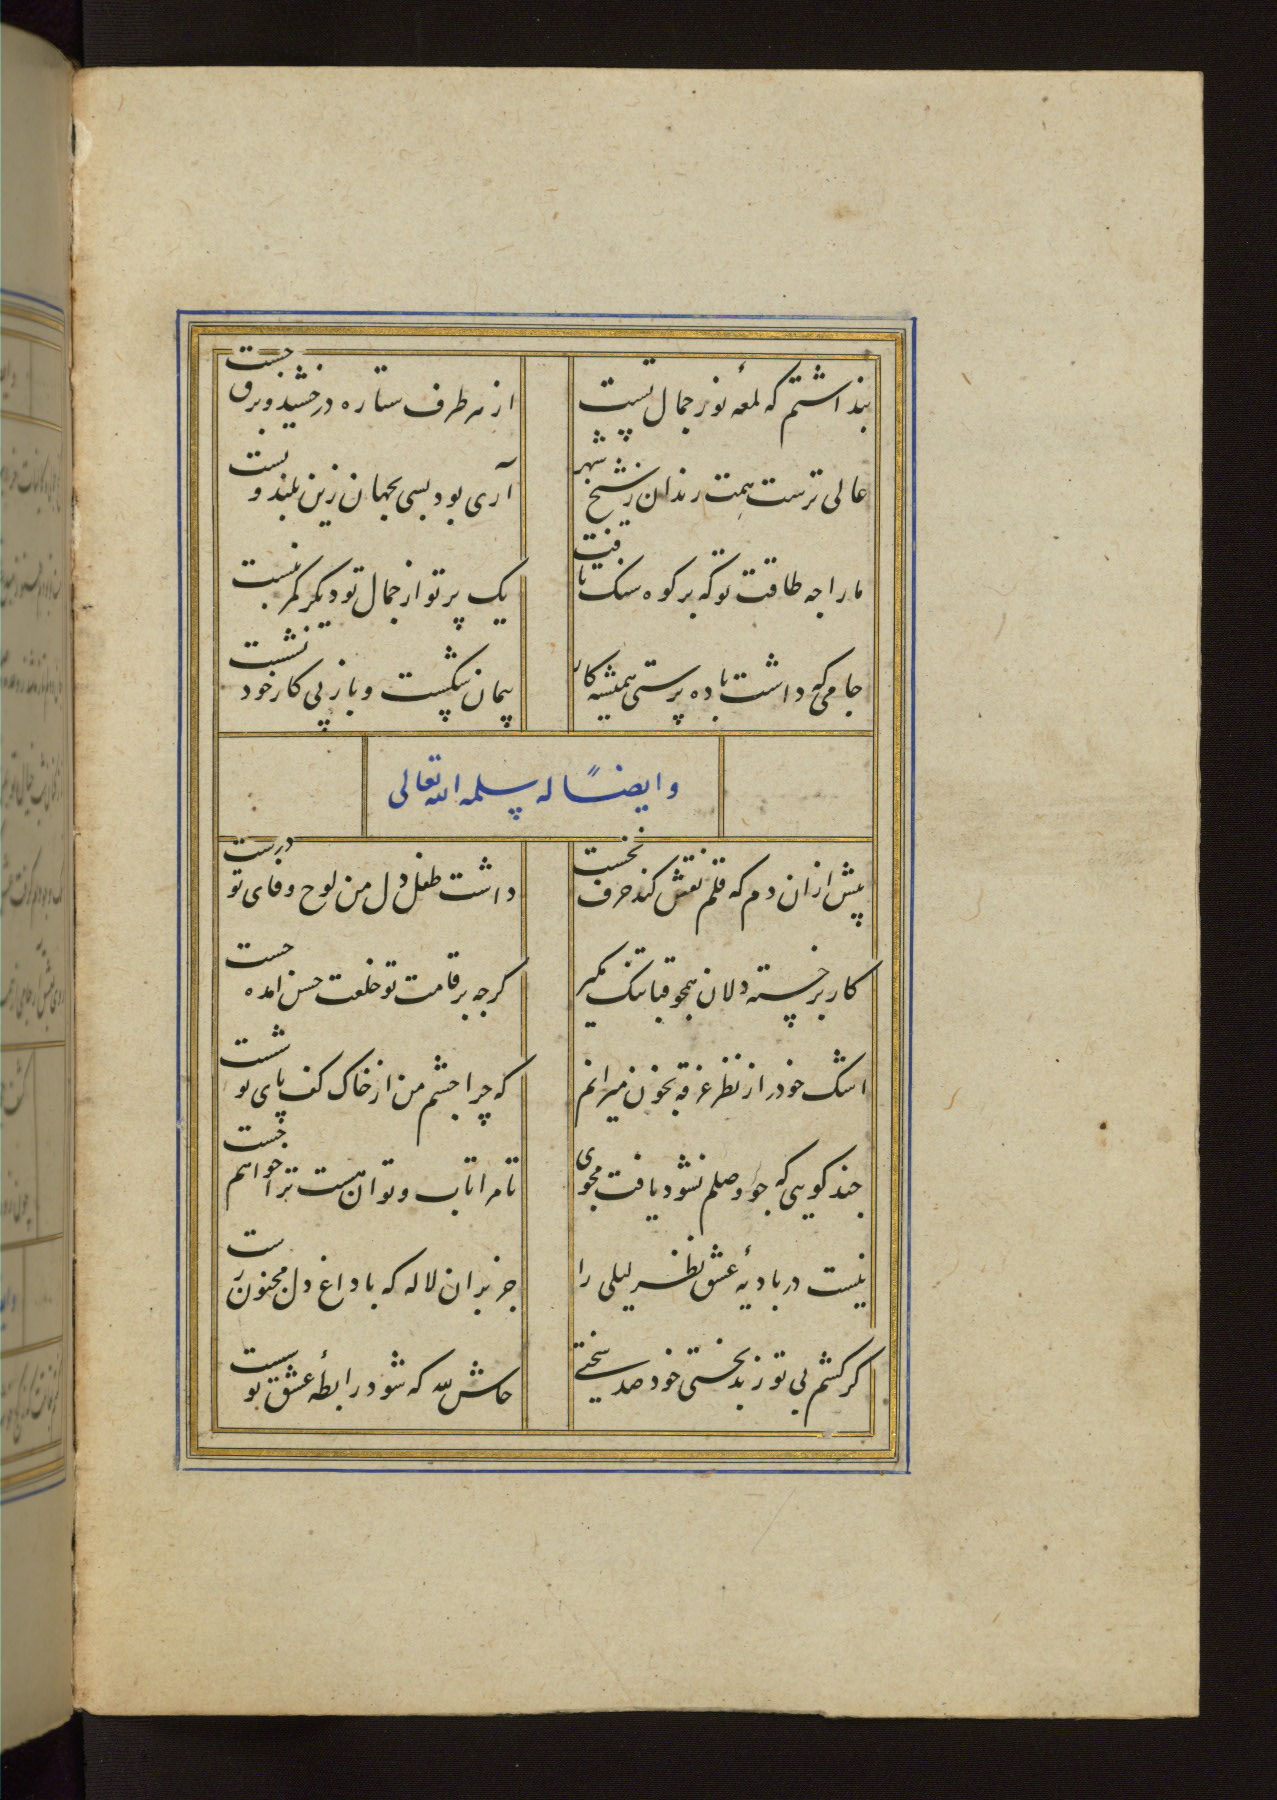 پنداشتم که لمعه نور جمال تست
از هر طرف ستاره درخشید و برق جست
عالی ترست همت رندان ز شیخ شهر
آری بود بسی بجهان زین بلند و پست
ما را چه طاقت تو که بر کوه سنک تافت
یک پرتو از جمال تو دیکر کمر نبست
جامی که داشت باده پرستی همیشه کار
پیمان شکست و باز پی کار خود نشست
وایضًا له سلمه الله تعالی
پیش ازان دم که قلم نقش کند حرف نخست
داشت طفل دل من لوح وفای تو درست
کار بر خسته دلان همچو قبا تنک مکیر
کرچه بر قامت تو خلعت حسن امده چست
اشک خود را از نظر غرقه بخون میرانم
که چرا چشم من از خاک کف پای تو شست
چند کویی که جو وصلم نشود یافت مجوی
تا مرا تاب و توان هست ترا خواهم جست
نیست در بادیهٔ عشق نظر لیلی را
جز بران لاله که با داغ دل مجنون رست
کر کشم بی تو ز بدبختی خود صد سختی
حاش لله که شود رابطهٔ عشق تو سست